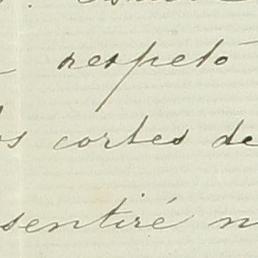 respetó
os cortes de
sentiré n